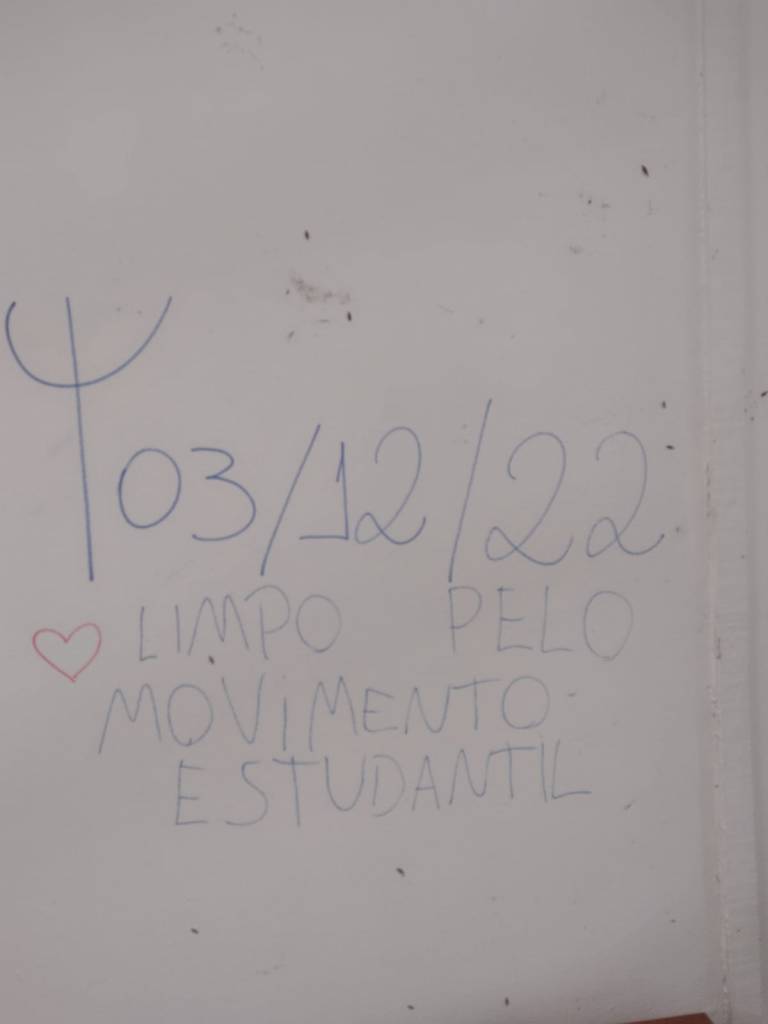 Ψ 03/12/22
♡ LIMPO PELO
MOViMENTO
ESTUDANTIL